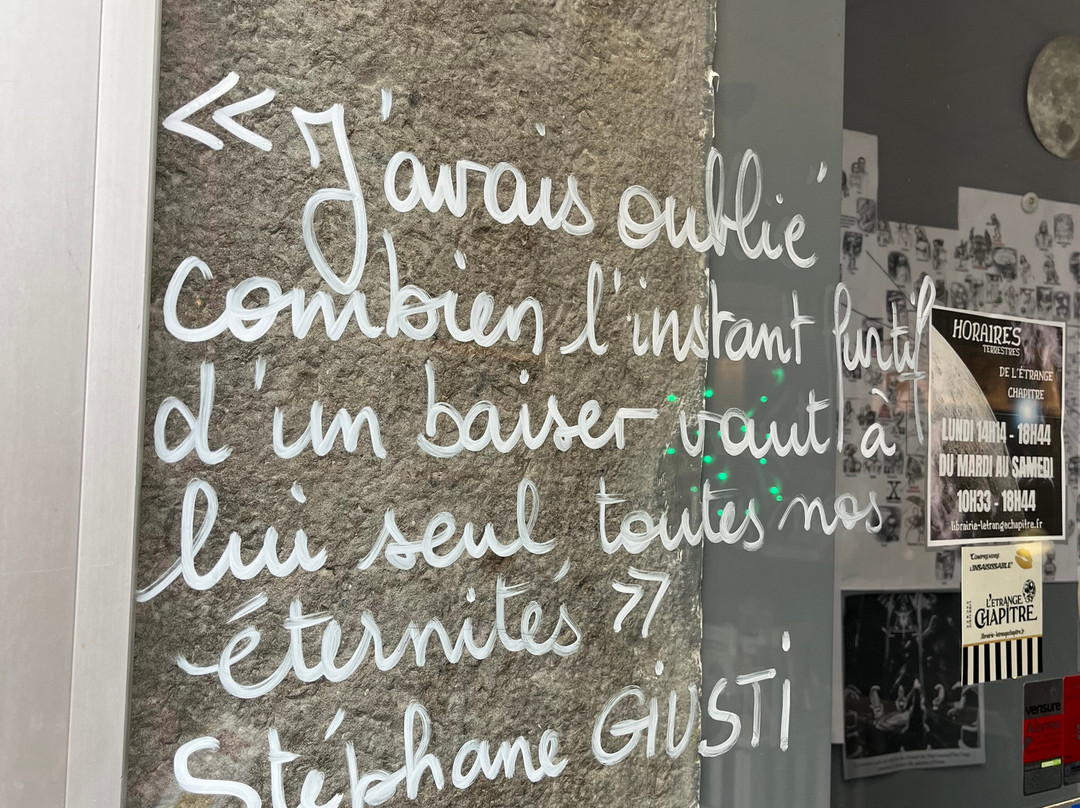 « J'avais oublié
combien l'instant furtif
d'un baiser vaut à
lui seul toutes nos
éternités »
Stéphane GIUSTI
HORAIRES
TERRESTRES
DE L'ÉTRANGE
CHAPITRE
LUNDI 14H14 - 18H44
DU MARDI AU SAMEDI
10H33 - 18H44
librairie-letrangechapitre.fr
COMPRENDRE
L'INSAISISSABLE
L'ÉTRANGE
CHAPITRE
librairie-letrangechapitre.fr